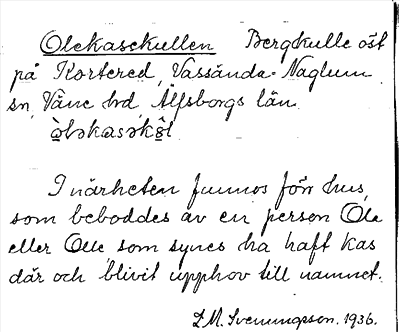 Olekasekullen Bergkulle öst
på Kortered, Vassända-Naglum
sn, Väne hd, Älfsborgs län.
òləkasəkùl
I närheten funnos förr hus,
som beboddes av en person Ola
eller Olle som synes ha haft kas
där och blivit upphov till namnet.
L.M. Svenungsson. 1936.